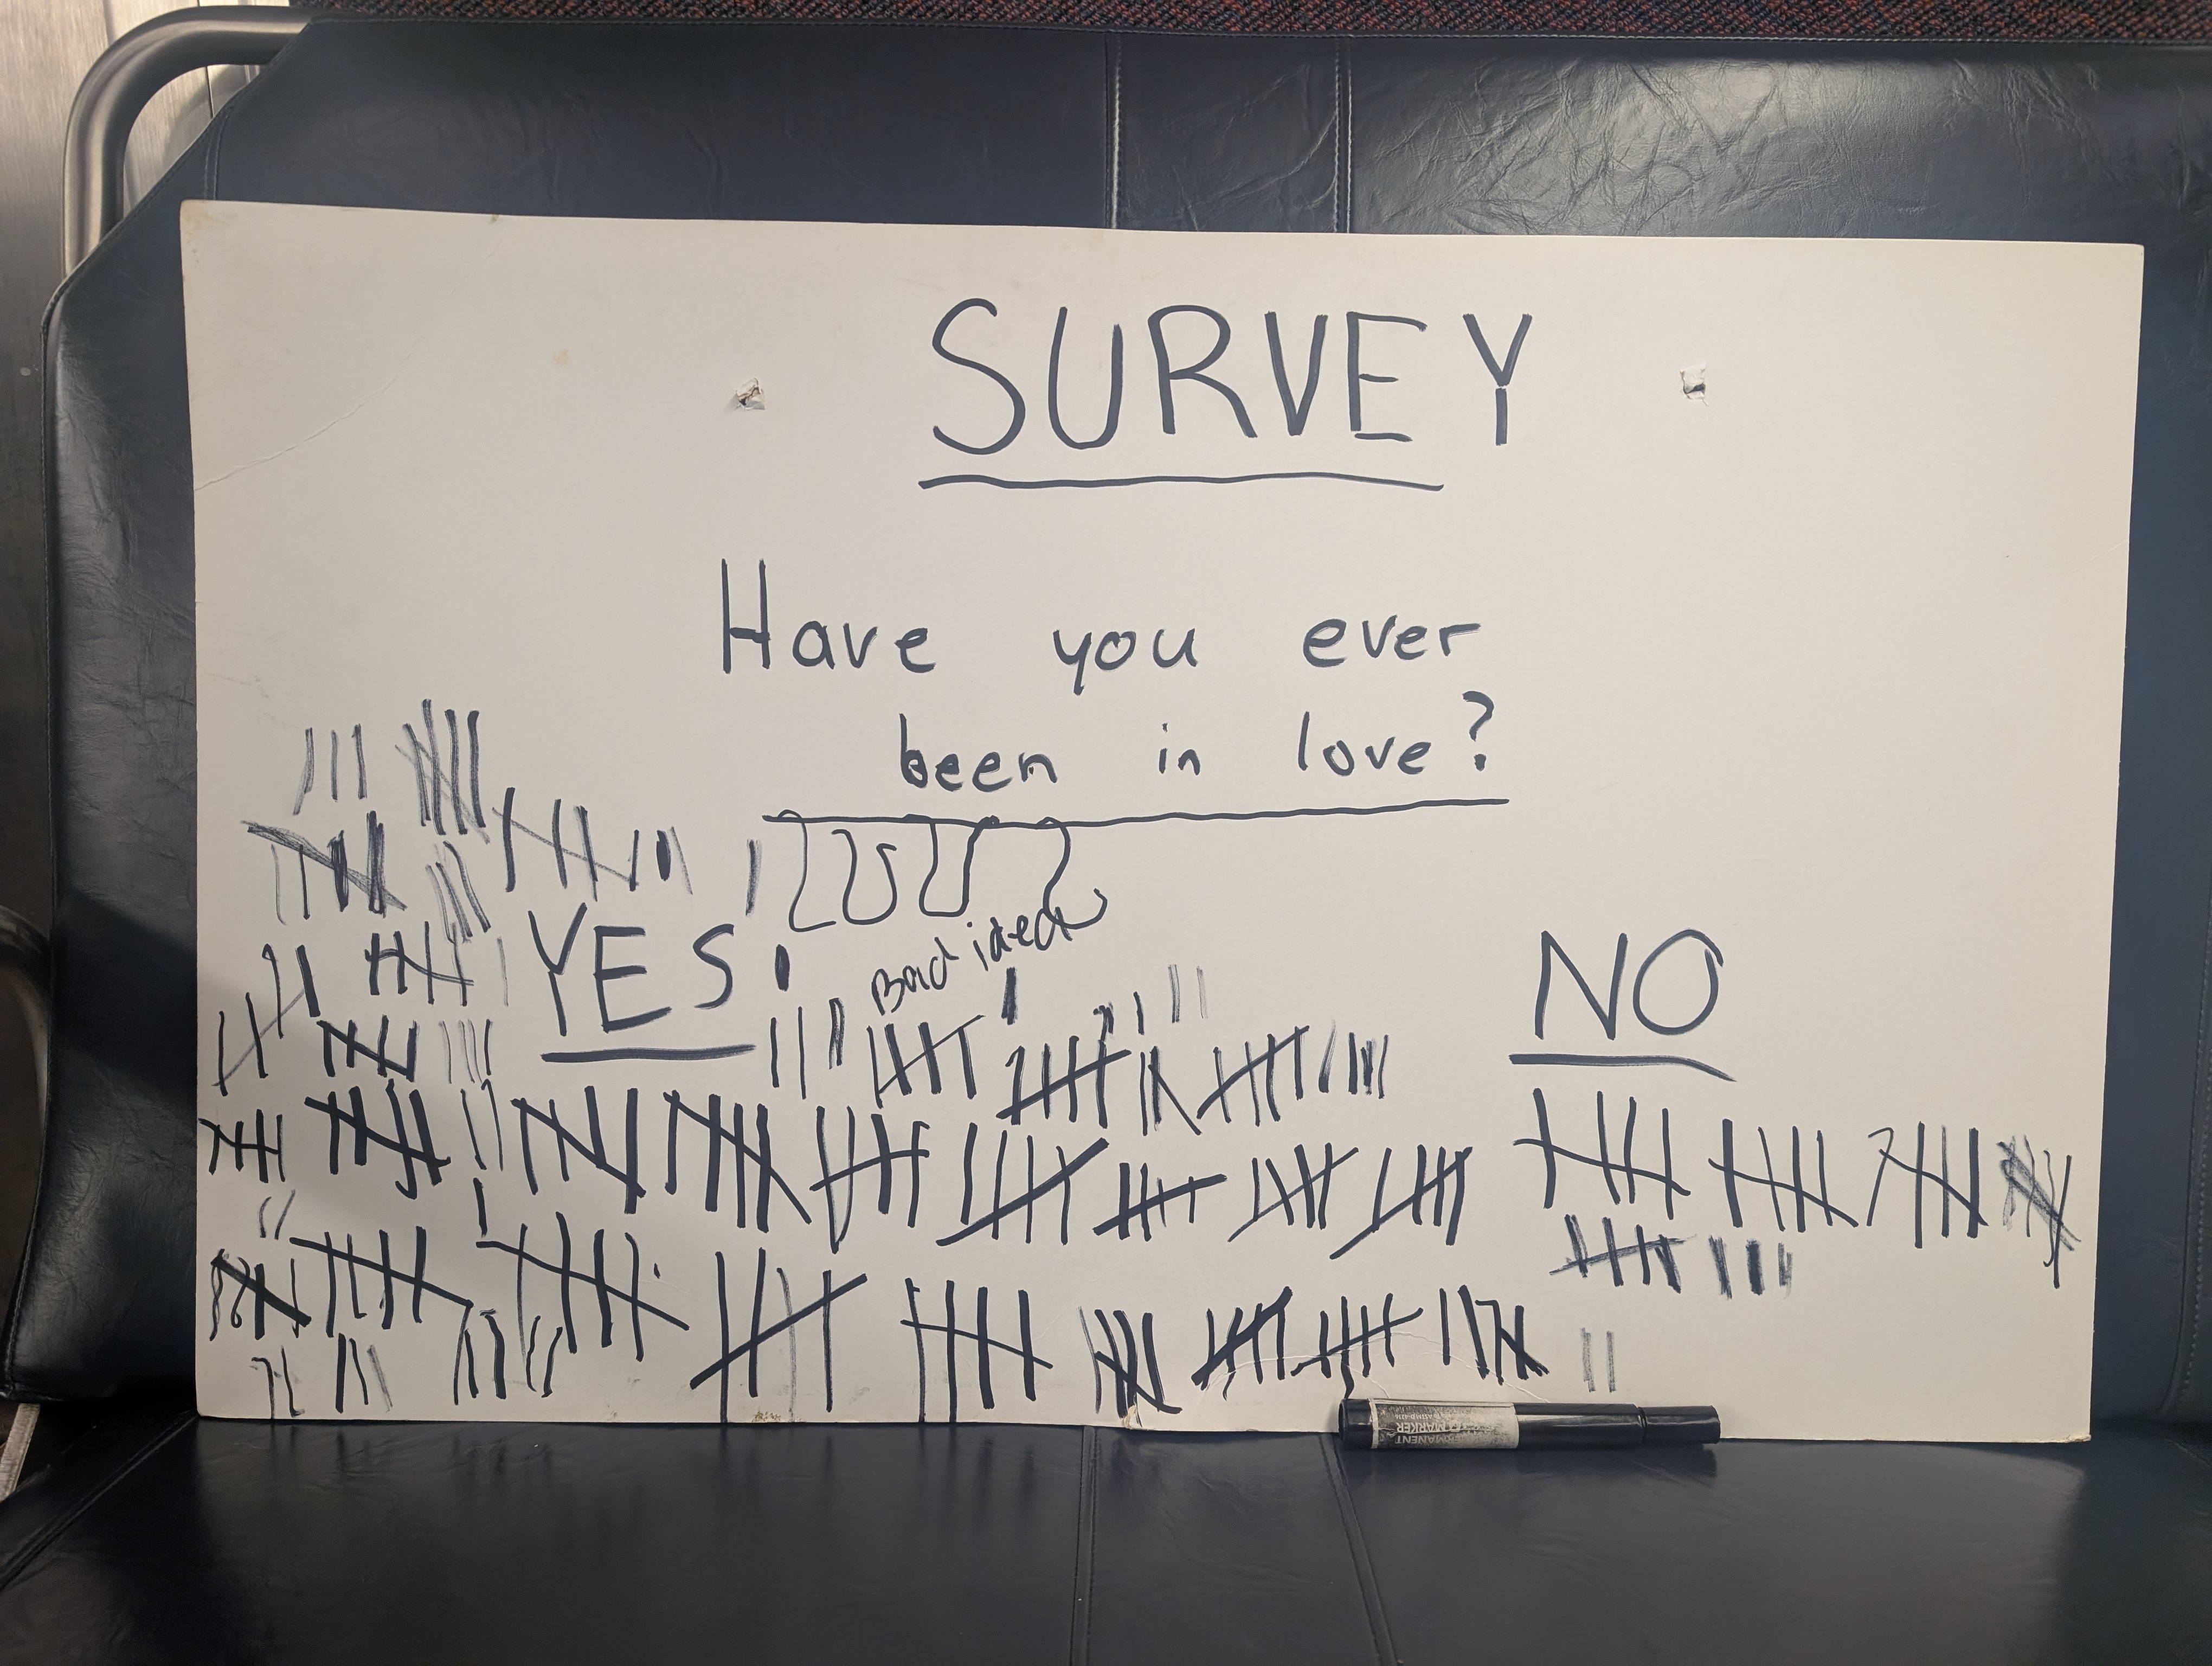 SURVEY
Have you ever
been in love?
YES
Bad idea
NO
PERMANENT
MARKER